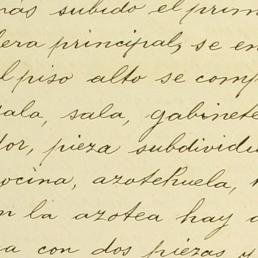 más subido el prim
lera principal, se en
el piso alto se comp
sala, sala, gabinete
dor, pieza subdividi
ocina, azotehuela,
n la azotea hay
a con dos piezas y